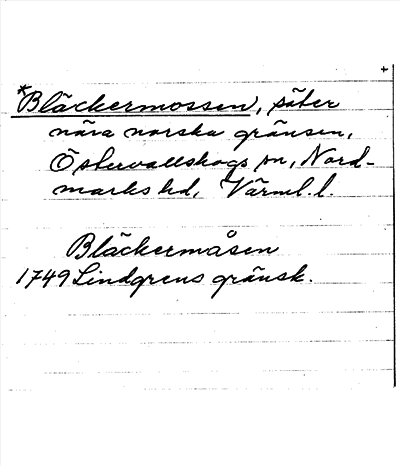 +
*Bläckermossen, säter
nära norska gränsen,
Östervallskogs sn, Nord-
marks hd, Värml. l.
Bläckermåsen
1749 Lindgrens gränsk.